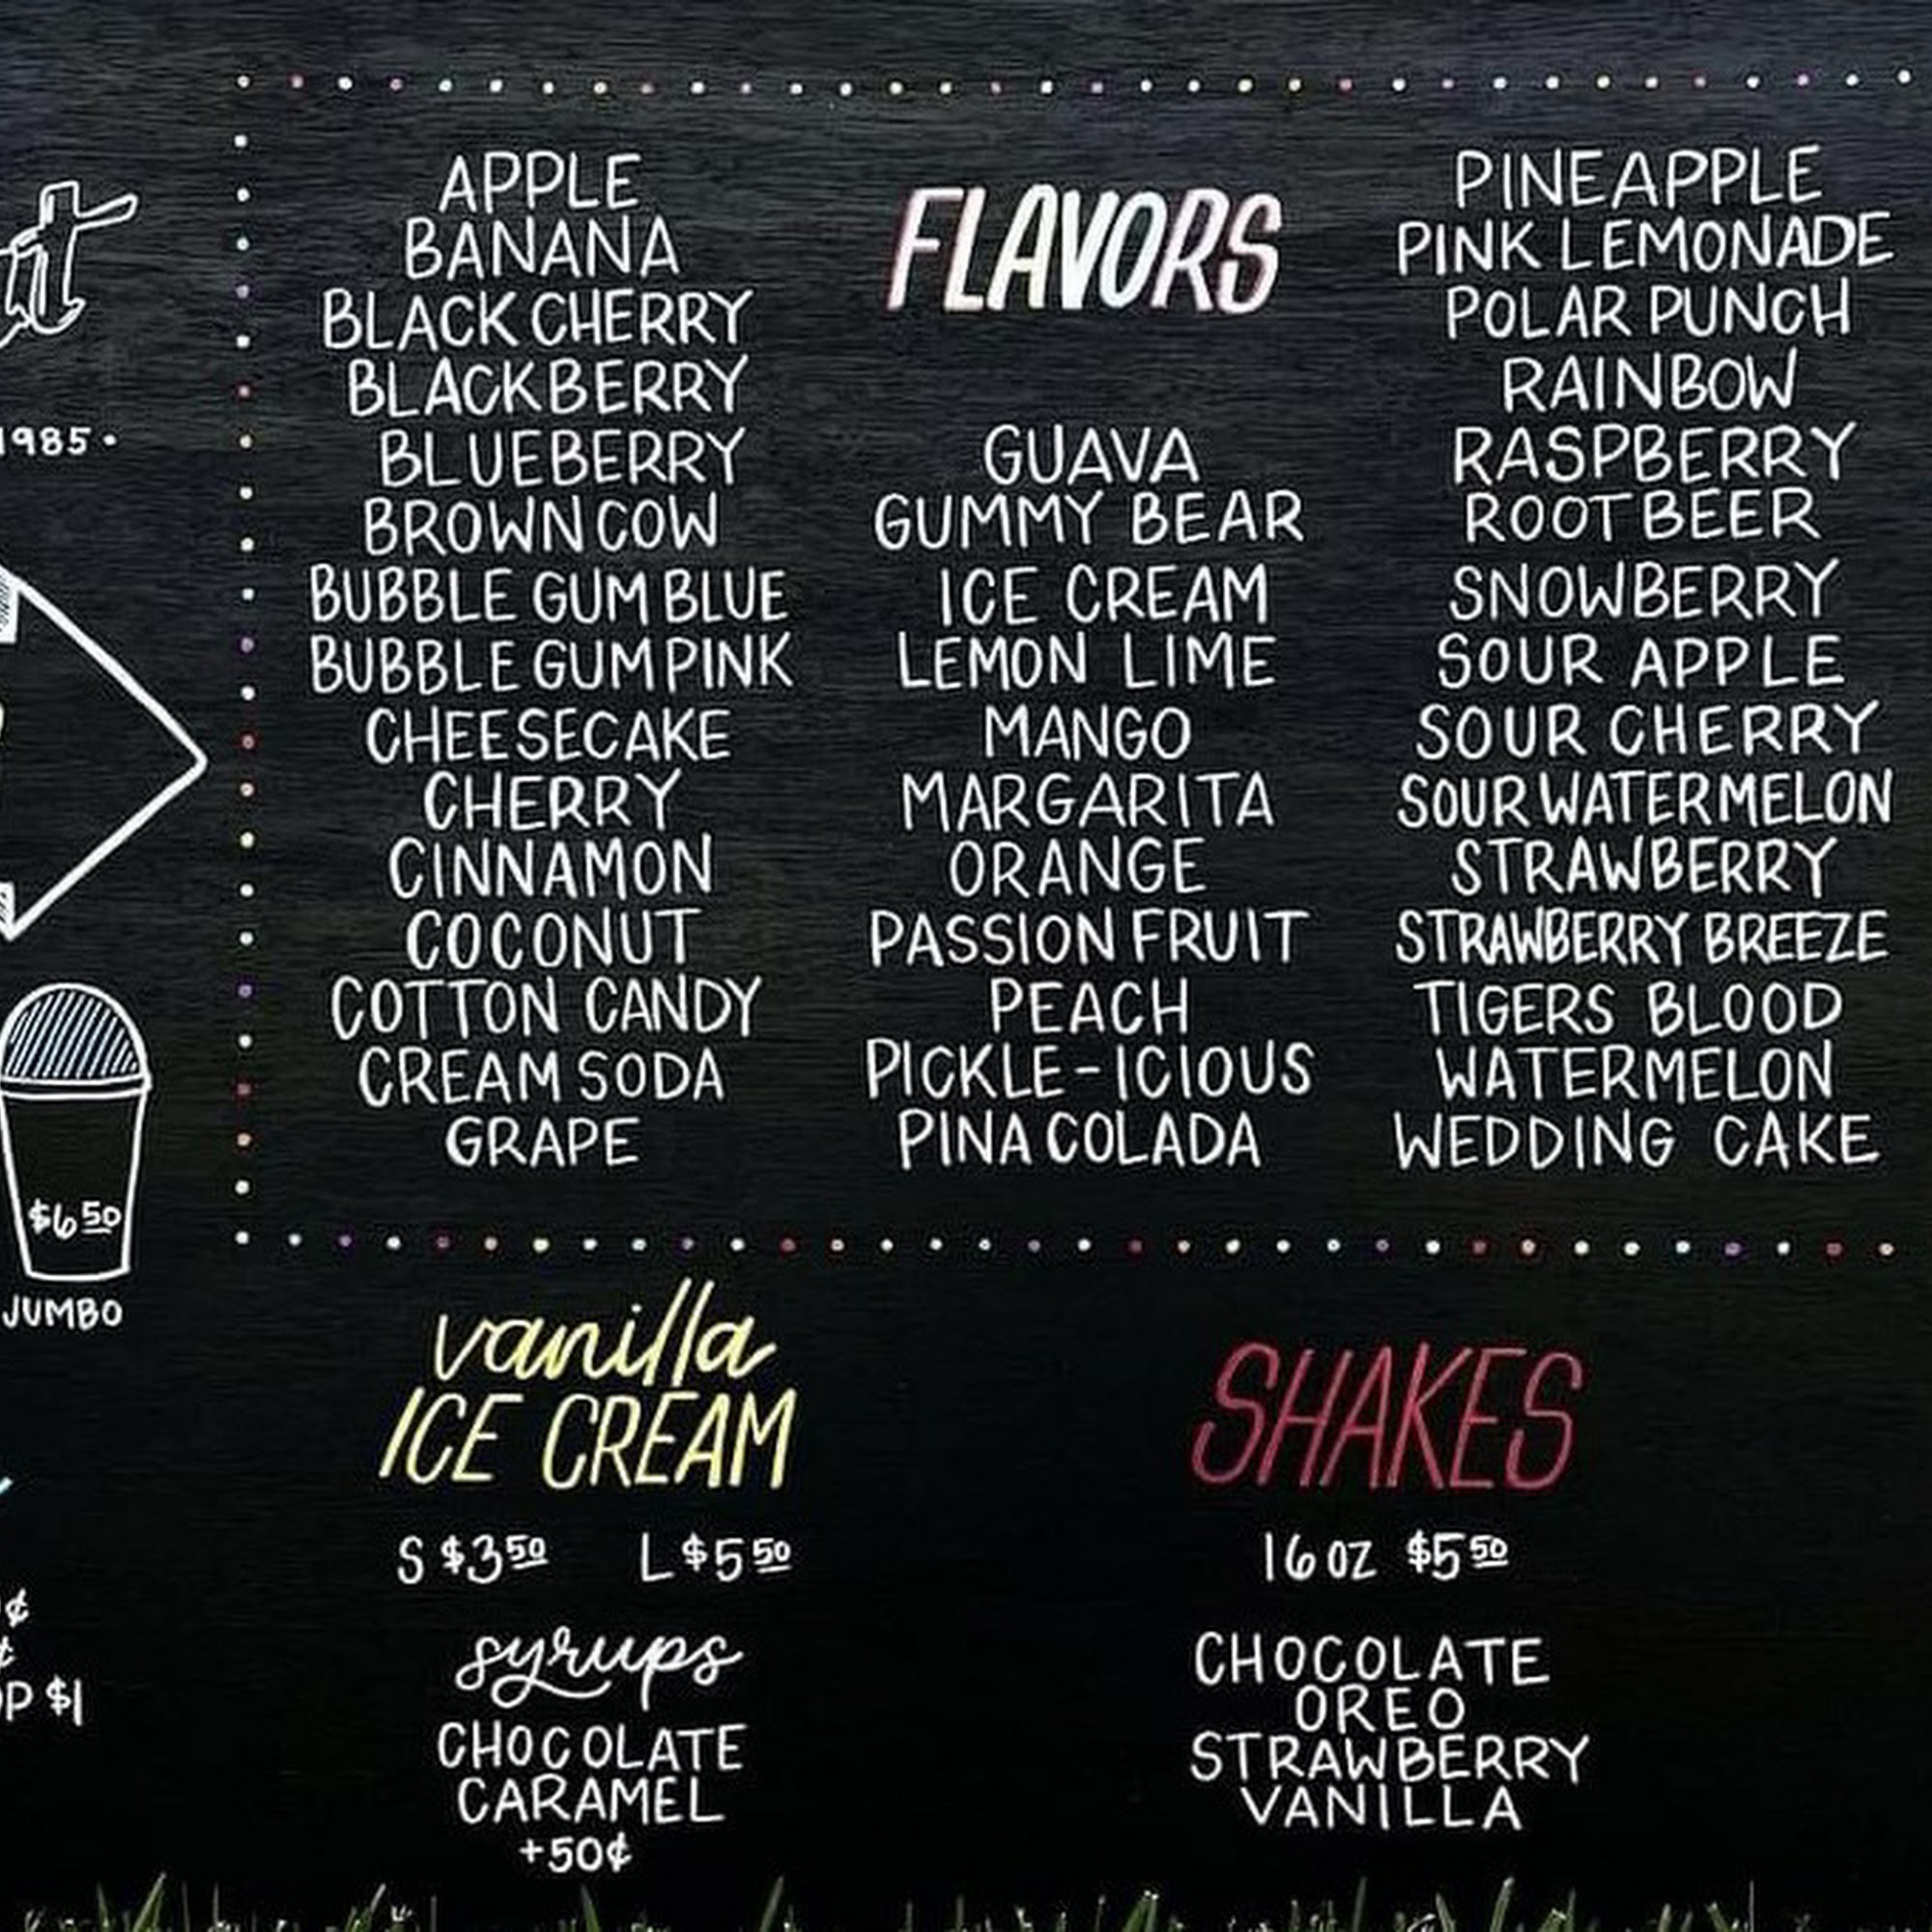 1985•
$6.50
JUMBO
P $1
APPLE
BANANA
BLACK CHERRY
BLACKBERRY
BLUEBERRY
BROWN COW
BUBBLE GUM BLUE
BUBBLE GUM PINK
CHEESECAKE
CHERRY
CINNAMON
COCONUT
COTTON CANDY
CREAM SODA
GRAPE
FLAVORS
GUAVA
GUMMY BEAR
ICE CREAM
LEMON LIME
MANGO
MARGARITA
ORANGE
PASSION FRUIT
PEACH
PICKLE-ICIOUS
PINA COLADA
PINEAPPLE
PINK LEMONADE
POLAR PUNCH
RAINBOW
RASPBERRY
ROOT BEER
SNOWBERRY
SOUR APPLE
SOUR CHERRY
SOUR WATERMELON
STRAWBERRY
STRAWBERRY BREEZE
TIGERS BLOOD
WATERMELON
WEDDING CAKE
vanilla
ICE CREAM
S $3.50 L $5.50
syrups
CHOCOLATE
CARAMEL
+50¢
SHAKES
16 OZ $5.50
CHOCOLATE
OREO
STRAWBERRY
VANILLA